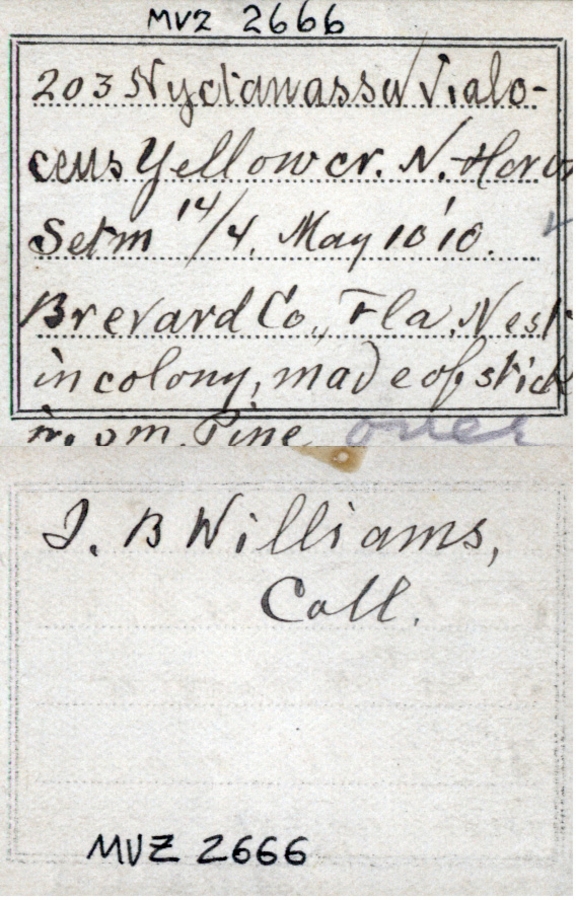 MVZ 2666
203 Nyctanassa Vialo-
ceus Yellow cr. N. Heron
Set m 14/4. May 10 '10.
Brevard Co., Fla. Nest
in colony, made of stick
from Pine over
J. B Williams,
Coll.
MVZ 2666